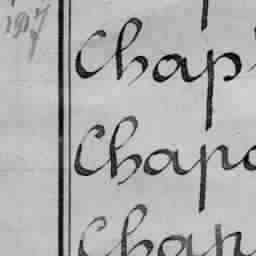 1917
Chap
Chapa
Chap